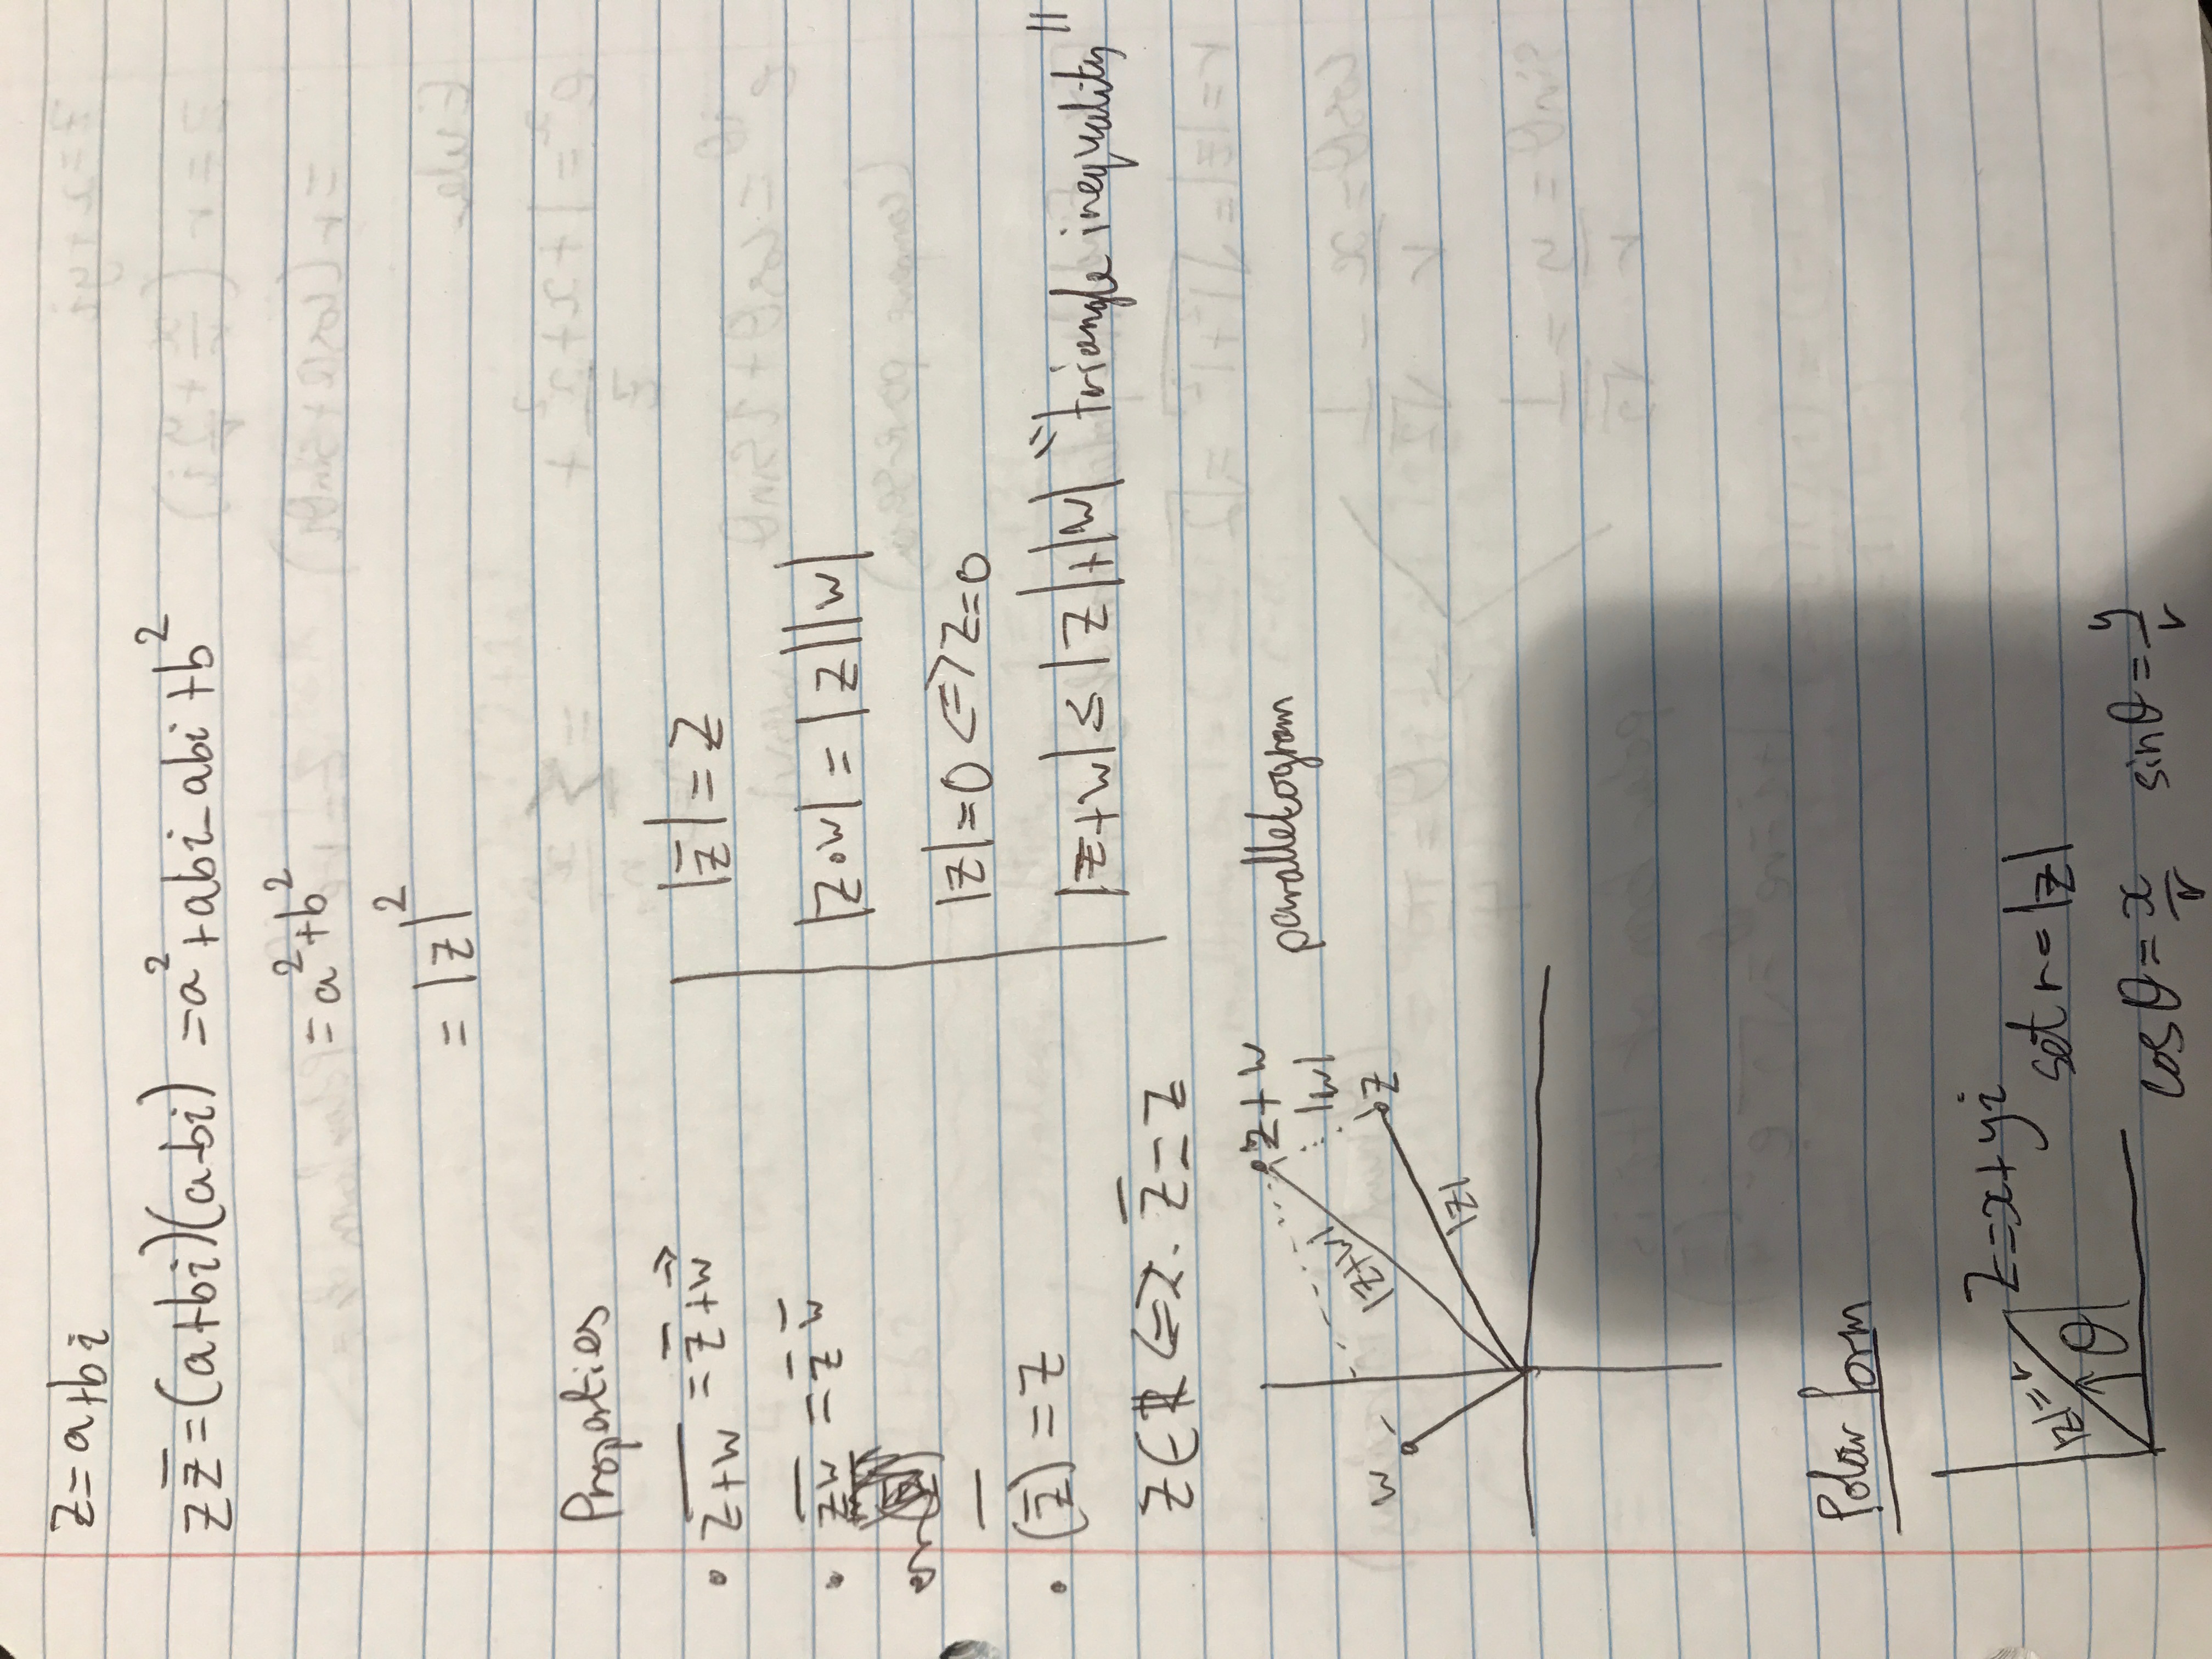 z = a+bi
z z̅ = (a+bi)(a-bi) = a² + abi - abi + b²
= a² + b²
= |z|²
Properties
• \overline{z+w} = z̅ + w⃗
|z̅| = z
• \overline{zw} = z̅ w̅
|z•w| = |z||w|
|z| = 0 <=> z = 0
• \overline{(z̅)} = z
|z+w| ≤ |z|+|w| "triangle inequality"
z ∈ ℝ <=> z̅ = z
parallelogram
z+w
|w|
w
z
|z+w|
|z|
Polar form
z = x+yi
|z|=r
set r = |z|
θ
cos θ = x/r sin θ = y/r